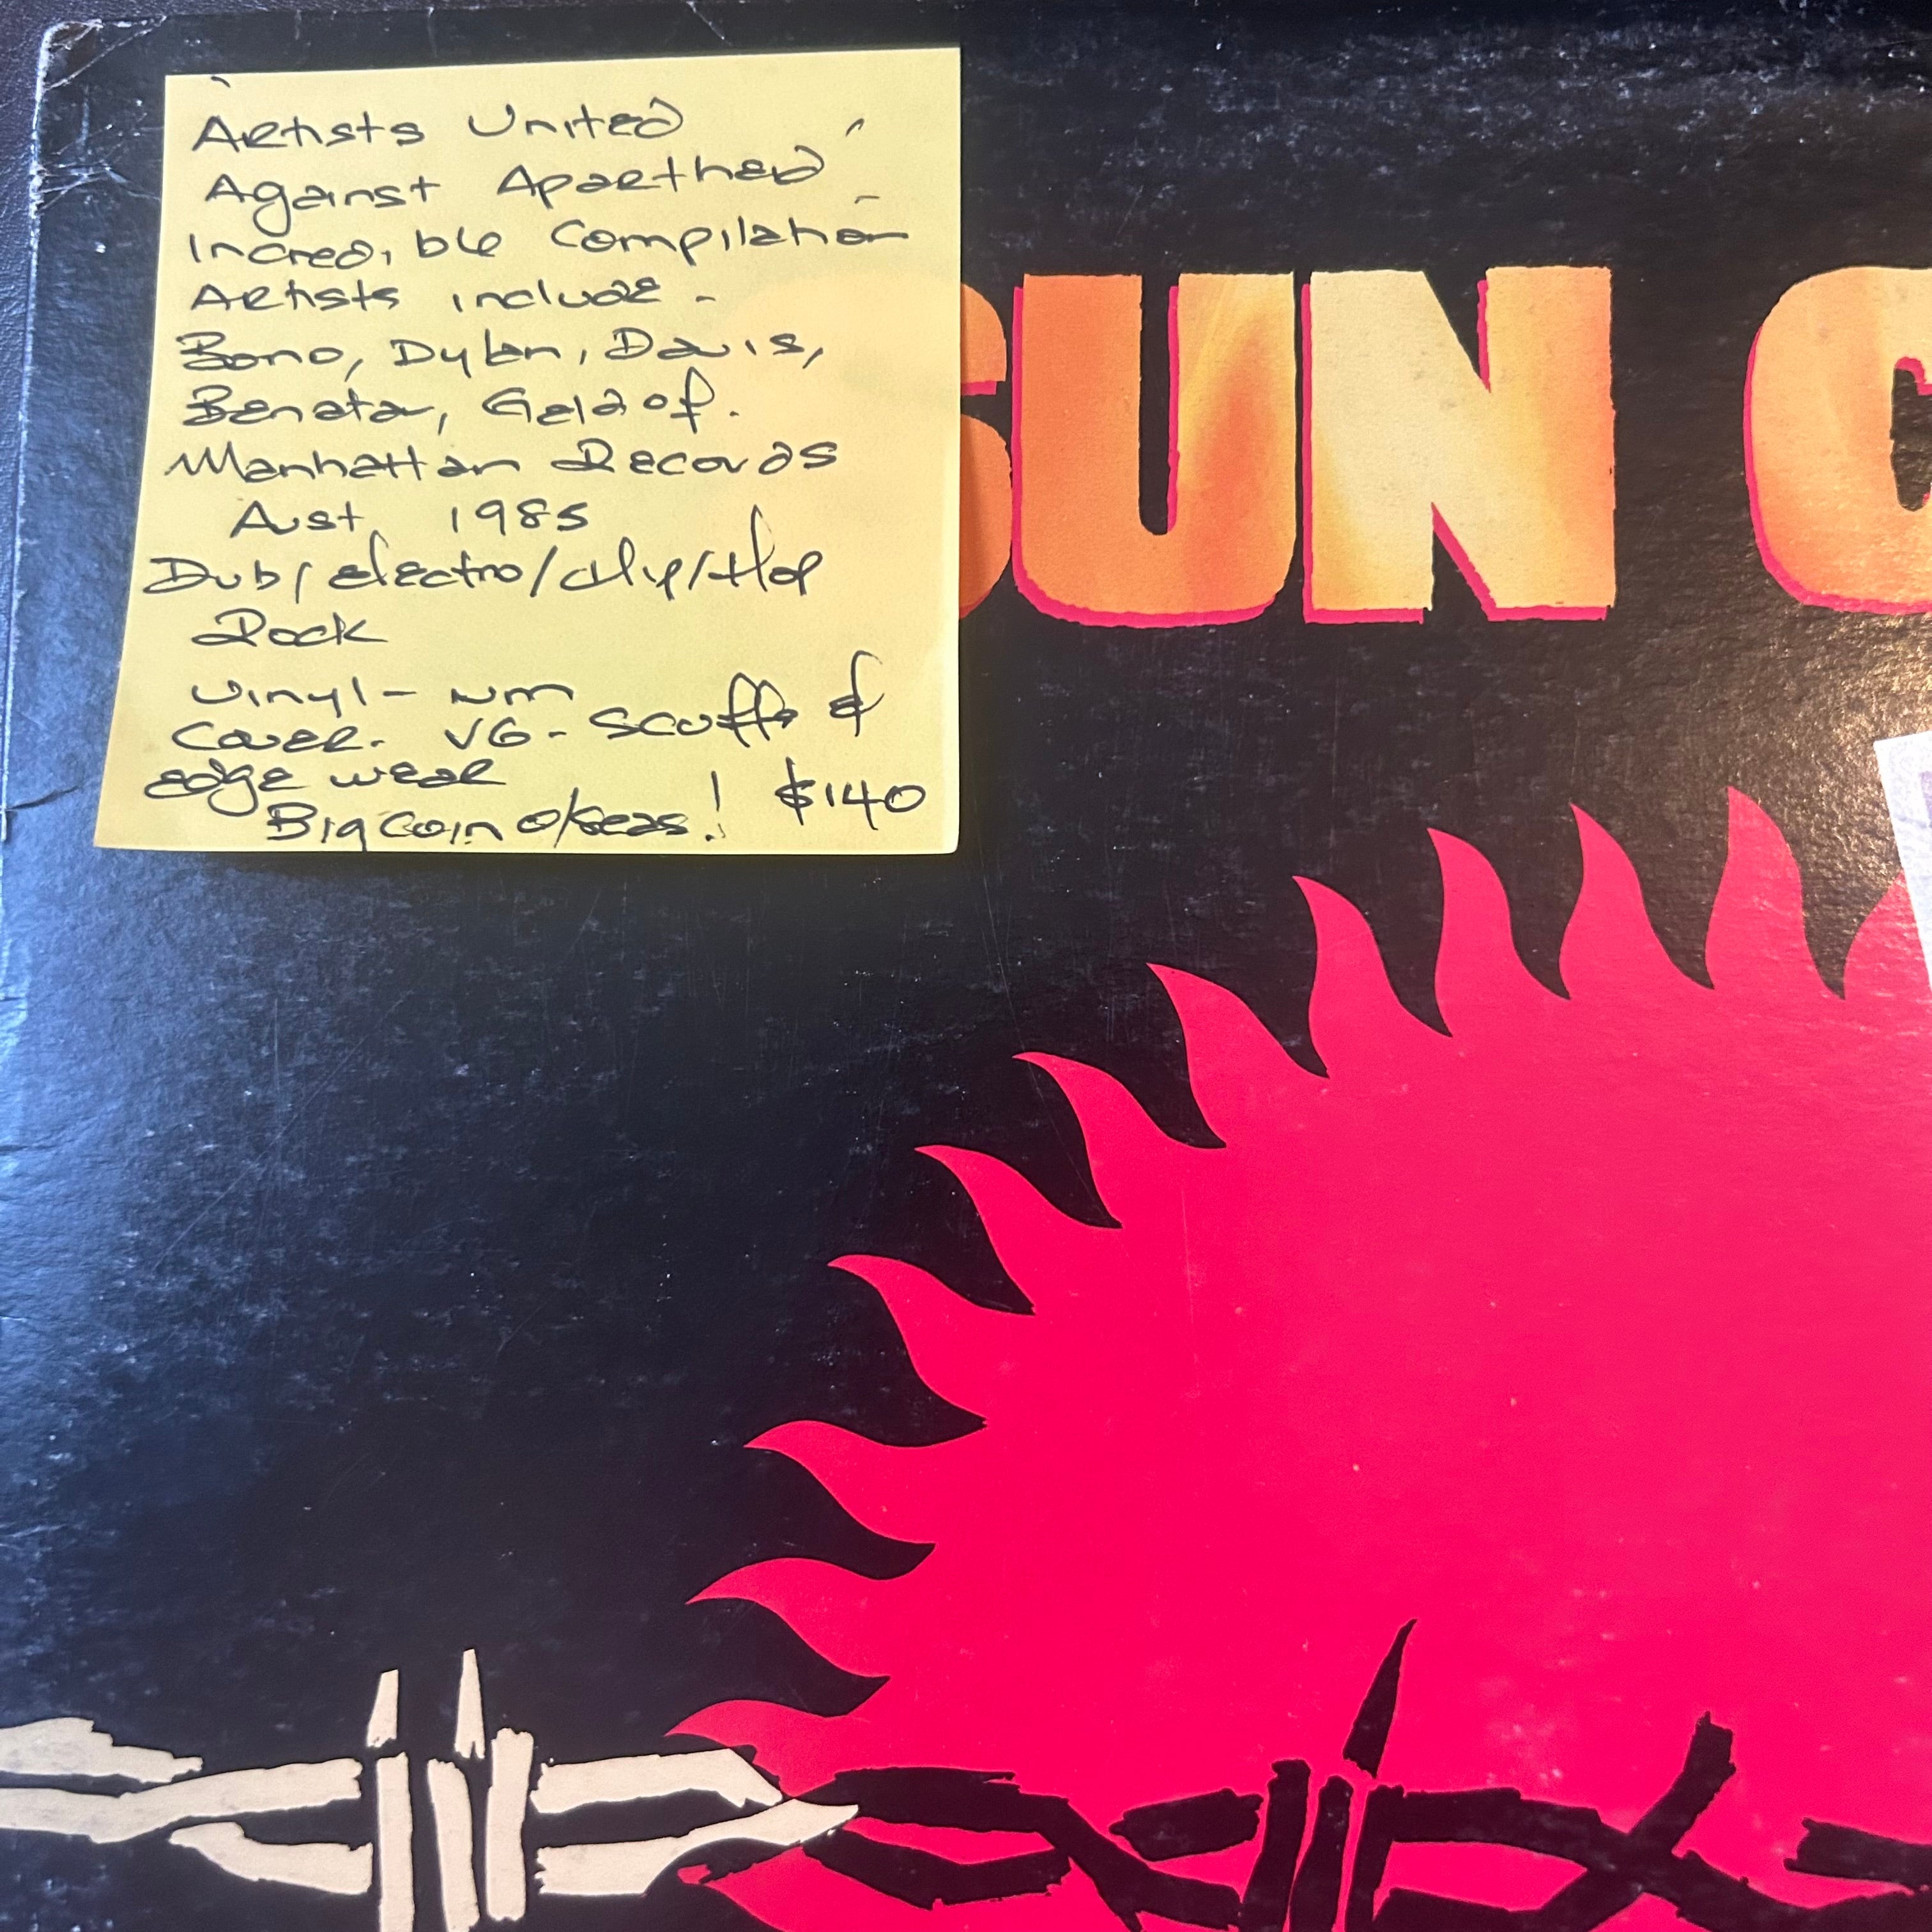 Artists United
Against Apartheid
Incredible Compilation
Artists include -
Bono, Dylan, Davis,
Benatar, Geldof.
Manhattan Records
Aust 1985
Dub/electro/Hip/Hop
Rock
Vinyl - NM
Cover. VG - Scuffs &
edge wear
Big Coin o/seas! $140
SUN C